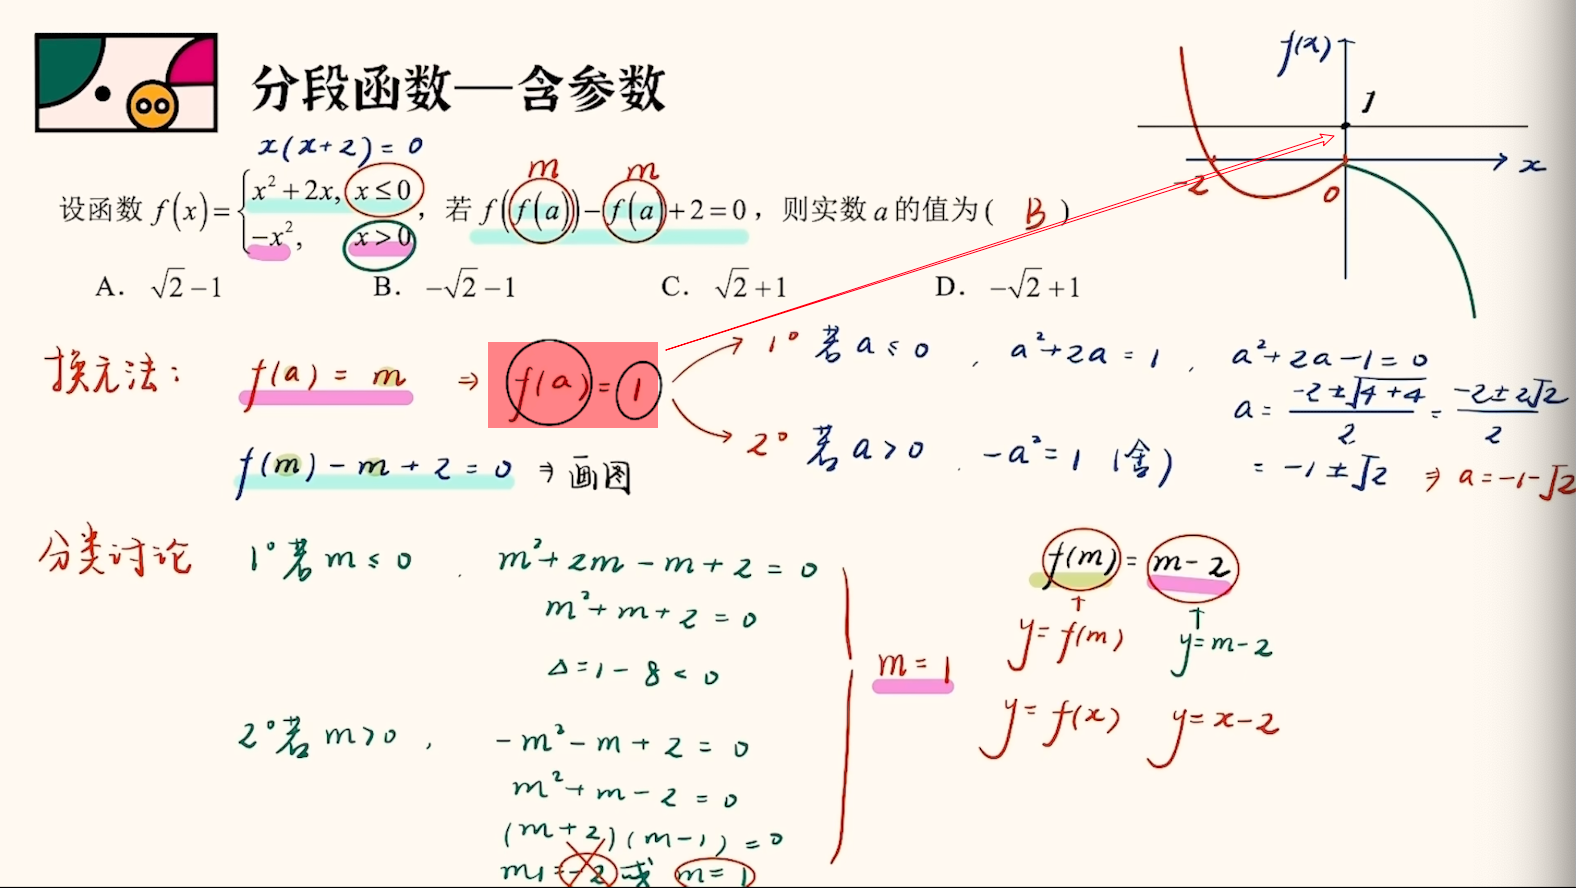 分段函数—含参数
x(x+2)=0
设函数 f(x)={x²+2x, x≤0
−x², x>0，若 f(f(a))−f(a)+2=0，则实数a的值为( B )
m m
A. √2−1 B. −√2−1 C. √2+1 D. −√2+1
f(x)
1
x
-2
0
换元法： f(a) = m ⇒ f(a) = 1
1° 若 a ≤ 0 , a²+2a = 1 , a²+2a−1=0
a = (−2±√(4+4))/2 = (−2±2√2)/2
= −1±√2 ⇒ a=−1−√2
2° 若 a > 0 . −a²=1 (舍)
f(m) − m + 2 = 0 ⇒ 画图
分类讨论 1° 若 m ≤ 0 . m²+2m−m+2 = 0
m²+m+2 = 0
Δ=1−8 < 0
2° 若 m>0 , −m²−m+2 = 0
m²+m−2 = 0
(m+2)(m−1) = 0
m₁=−2 或 m=1
m=1
f(m) = m−2
↑ ↑
y=f(m) y=m−2
y=f(x) y=x−2